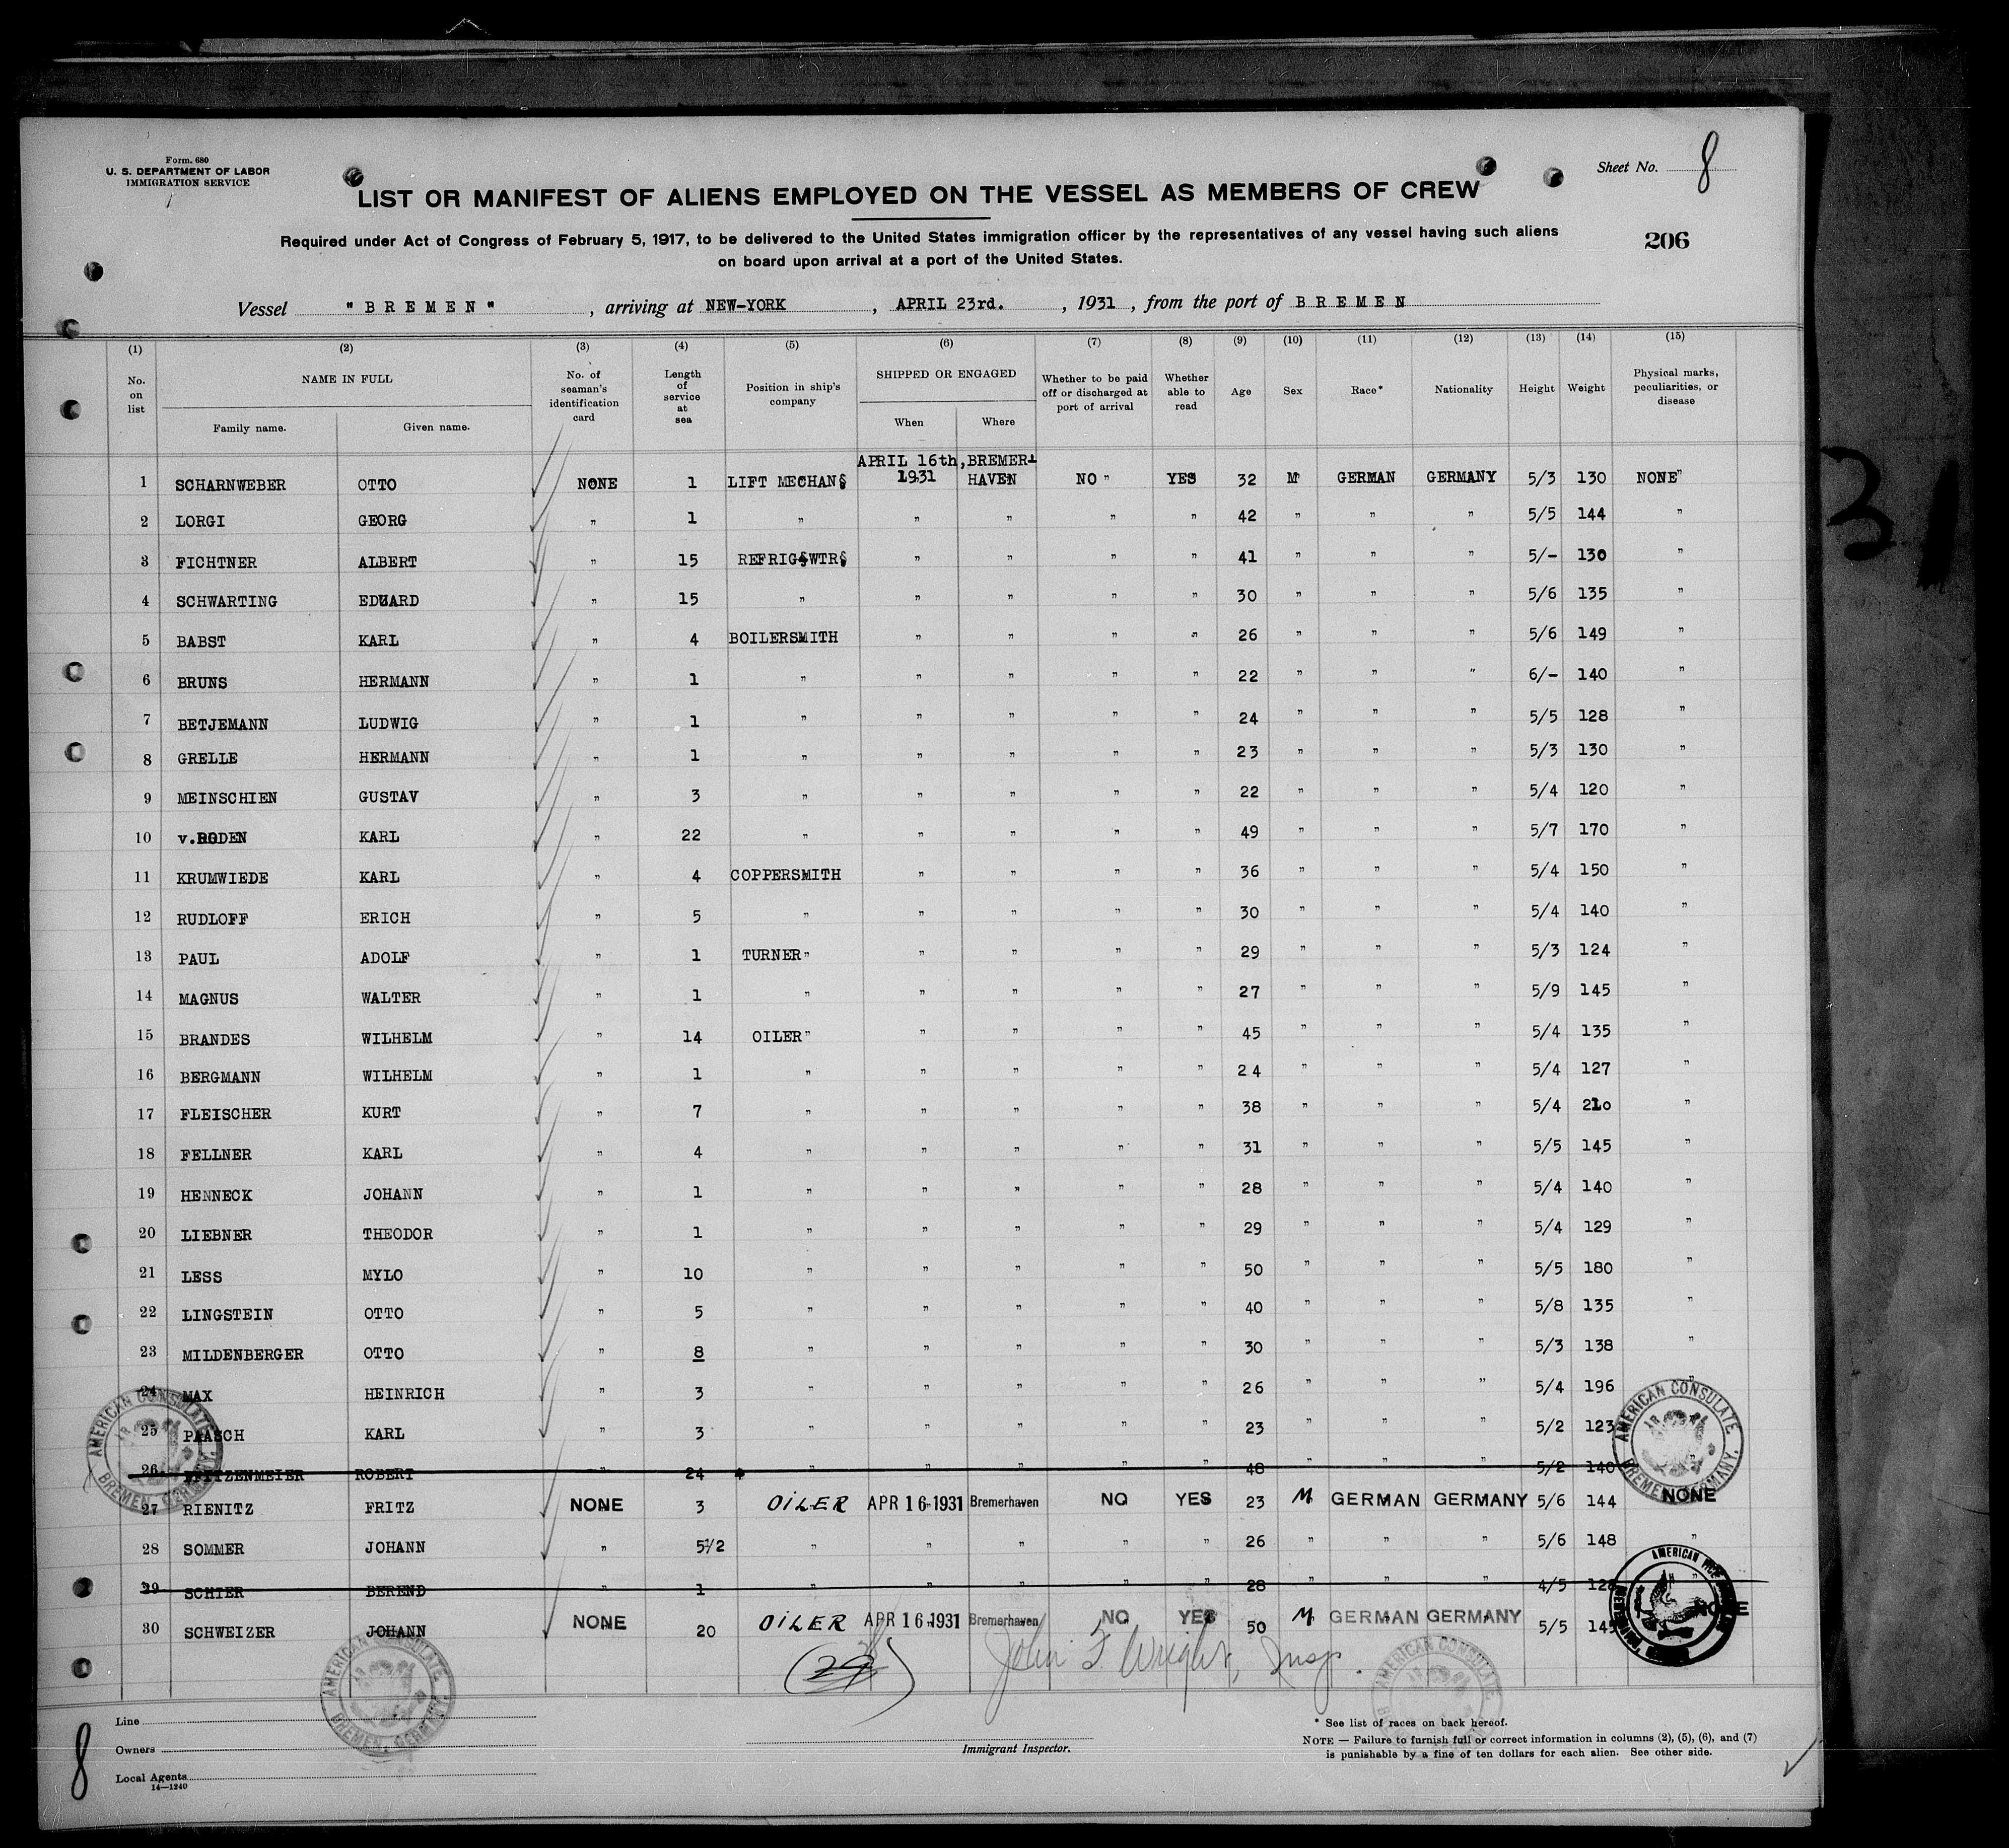 Form. 680
U. S. DEPARTMENT OF LABOR
IMMIGRATION SERVICE
Sheet No. 8
LIST OR MANIFEST OF ALIENS EMPLOYED ON THE VESSEL AS MEMBERS OF CREW
206
Required under Act of Congress of February 5, 1917, to be delivered to the United States immigration officer by the representatives of any vessel having such aliens
on board upon arrival at a port of the United States.
Vessel "BREMEN", arriving at NEW-YORK, APRIL 23rd., 1931, from the port of BREMEN
(1) (2) (3) (4) (5) (6) (7) (8) (9) (10) (11) (12) (13) (14) (15)
No. on list NAME IN FULL Family name. Given name. No. of seaman's identification card Length of service at sea Position in ship's company SHIPPED OR ENGAGED When Where Whether to be paid off or discharged at port of arrival Whether able to read Age Sex Race* Nationality Height Weight Physical marks, peculiarities, or disease
1 SCHARNWEBER OTTO NONE 1 LIFT MECHAN§ APRIL 16th, 1931 BREMER-HAVEN NO " YES 32 M GERMAN GERMANY 5/3 130 NONE"
2 LORGI GEORG " 1 " " " " " 42 " " " 5/5 144 "
3 FICHTNER ALBERT " 15 REFRIG§WTR§ " " " " 41 " " " 5/- 130 "
4 SCHWARTING EDUARD " 15 " " " " " 30 " " " 5/6 135 "
5 BABST KARL " 4 BOILERSMITH " " " " 26 " " " 5/6 149 "
6 BRUNS HERMANN " 1 " " " " " 22 " " " 6/- 140 "
7 BETJEMANN LUDWIG " 1 " " " " " 24 " " " 5/5 128 "
8 GRELLE HERMANN " 1 " " " " " 23 " " " 5/3 130 "
9 MEINSCHIEN GUSTAV " 3 " " " " " 22 " " " 5/4 120 "
10 v.RODEN KARL " 22 " " " " " 49 " " " 5/7 170 "
11 KRUMWIEDE KARL " 4 COPPERSMITH " " " " 36 " " " 5/4 150 "
12 RUDLOFF ERICH " 5 " " " " " 30 " " " 5/4 140 "
13 PAUL ADOLF " 1 TURNER" " " " " 29 " " " 5/3 124 "
14 MAGNUS WALTER " 1 " " " " " 27 " " " 5/9 145 "
15 BRANDES WILHELM " 14 OILER" " " " " 45 " " " 5/4 135 "
16 BERGMANN WILHELM " 1 " " " " " 24 " " " 5/4 127 "
17 FLEISCHER KURT " 7 " " " " " 38 " " " 5/4 210 "
18 FELLNER KARL " 4 " " " " " 31 " " " 5/5 145 "
19 HENNECK JOHANN " 1 " " " " " 28 " " " 5/4 140 "
20 LIEBNER THEODOR " 1 " " " " " 29 " " " 5/4 129 "
21 LESS MYLO " 10 " " " " " 50 " " " 5/5 180 "
22 LINGSTEIN OTTO " 5 " " " " " 40 " " " 5/8 135 "
23 MILDENBERGER OTTO " 8 " " " " " 30 " " " 5/3 138 "
24 MAX HEINRICH " 3 " " " " " 26 " " " 5/4 196 "
25 PAASCH KARL " 3 " " " " " 23 " " " 5/2 123
26 ROBERT " 24 " " " " " 48 " " " 5/2 140
27 RIENITZ FRITZ NONE 3 OILER APR 16 1931 Bremerhaven NO YES 23 M GERMAN GERMANY 5/6 144 NONE
28 SOMMER JOHANN " 5 1/2 " " " " " 26 " " " 5/6 148 "
29 SCHIER BEREND " 1 " " " " " 28 " " " 4/5 128 "
30 SCHWEIZER JOHANN NONE 20 OILER APR 16 1931 Bremerhaven NO YES 50 M GERMAN GERMANY 5/5 145 NONE
AMERICAN CONSULATE BREMEN, GERMANY
AMERICAN CONSULATE BREMEN, GERMANY
AMERICAN CONSULATE BREMEN, GERMANY
AMERICAN CONSULATE
AMERICAN VICE
John F. Wright, Insp.
Line
Owners
Local Agents
14—1240
Immigrant Inspector.
* See list of races on back hereof.
NOTE — Failure to furnish full or correct information in columns (2), (5), (6), and (7)
is punishable by a fine of ten dollars for each alien. See other side.
8
31